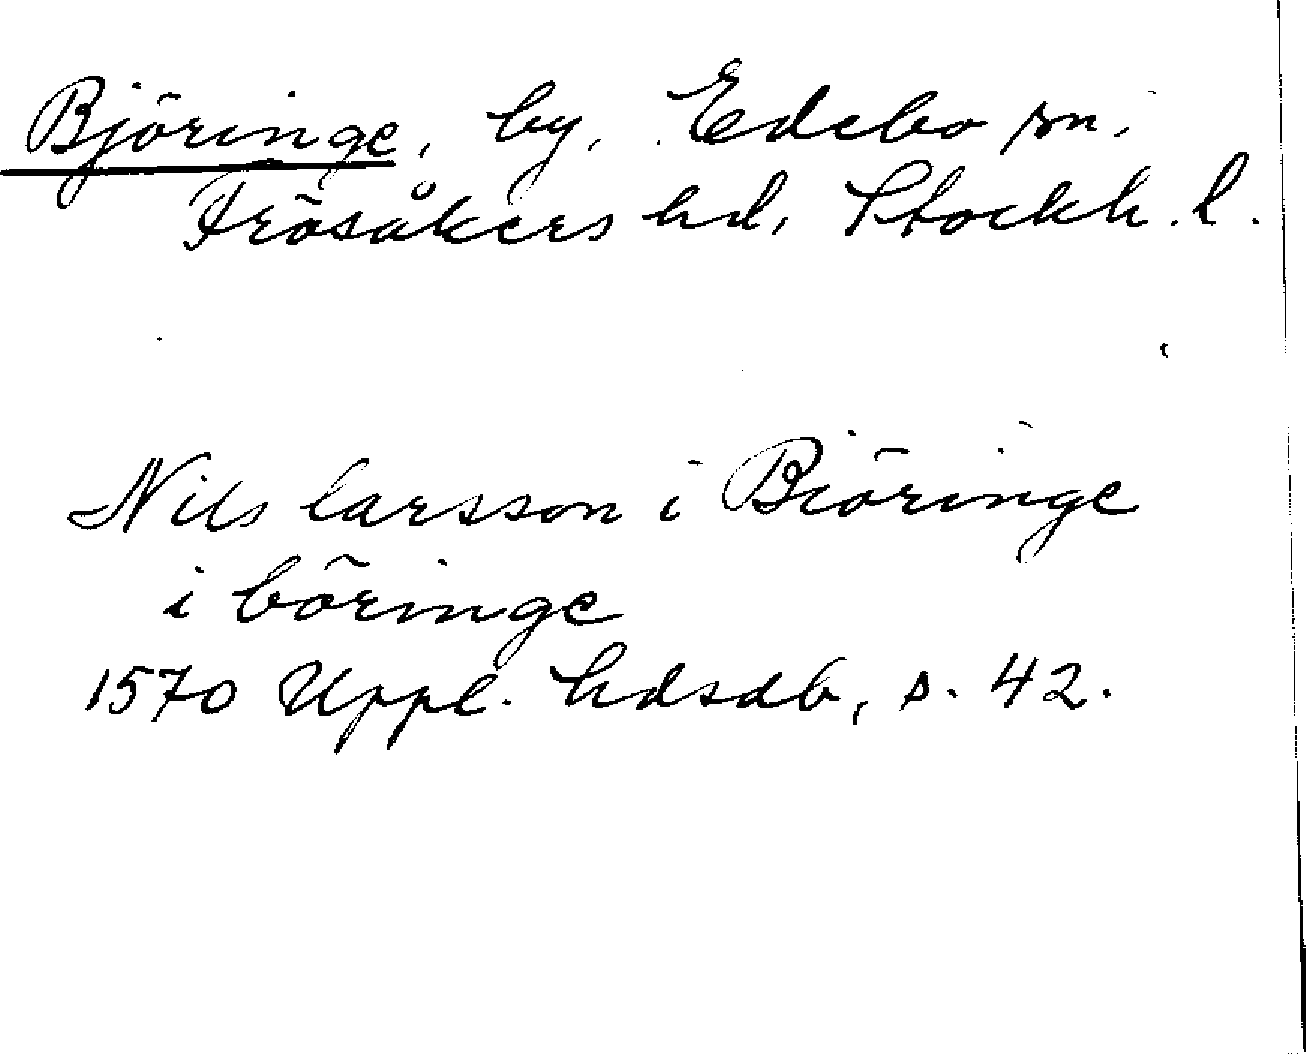 Björinge, by, Edebo sn,
Frösåkers hd, Stockh. l.
Nils larsson i Biöringe
i böringe
1570 Uppl. hdsdb, s. 42.